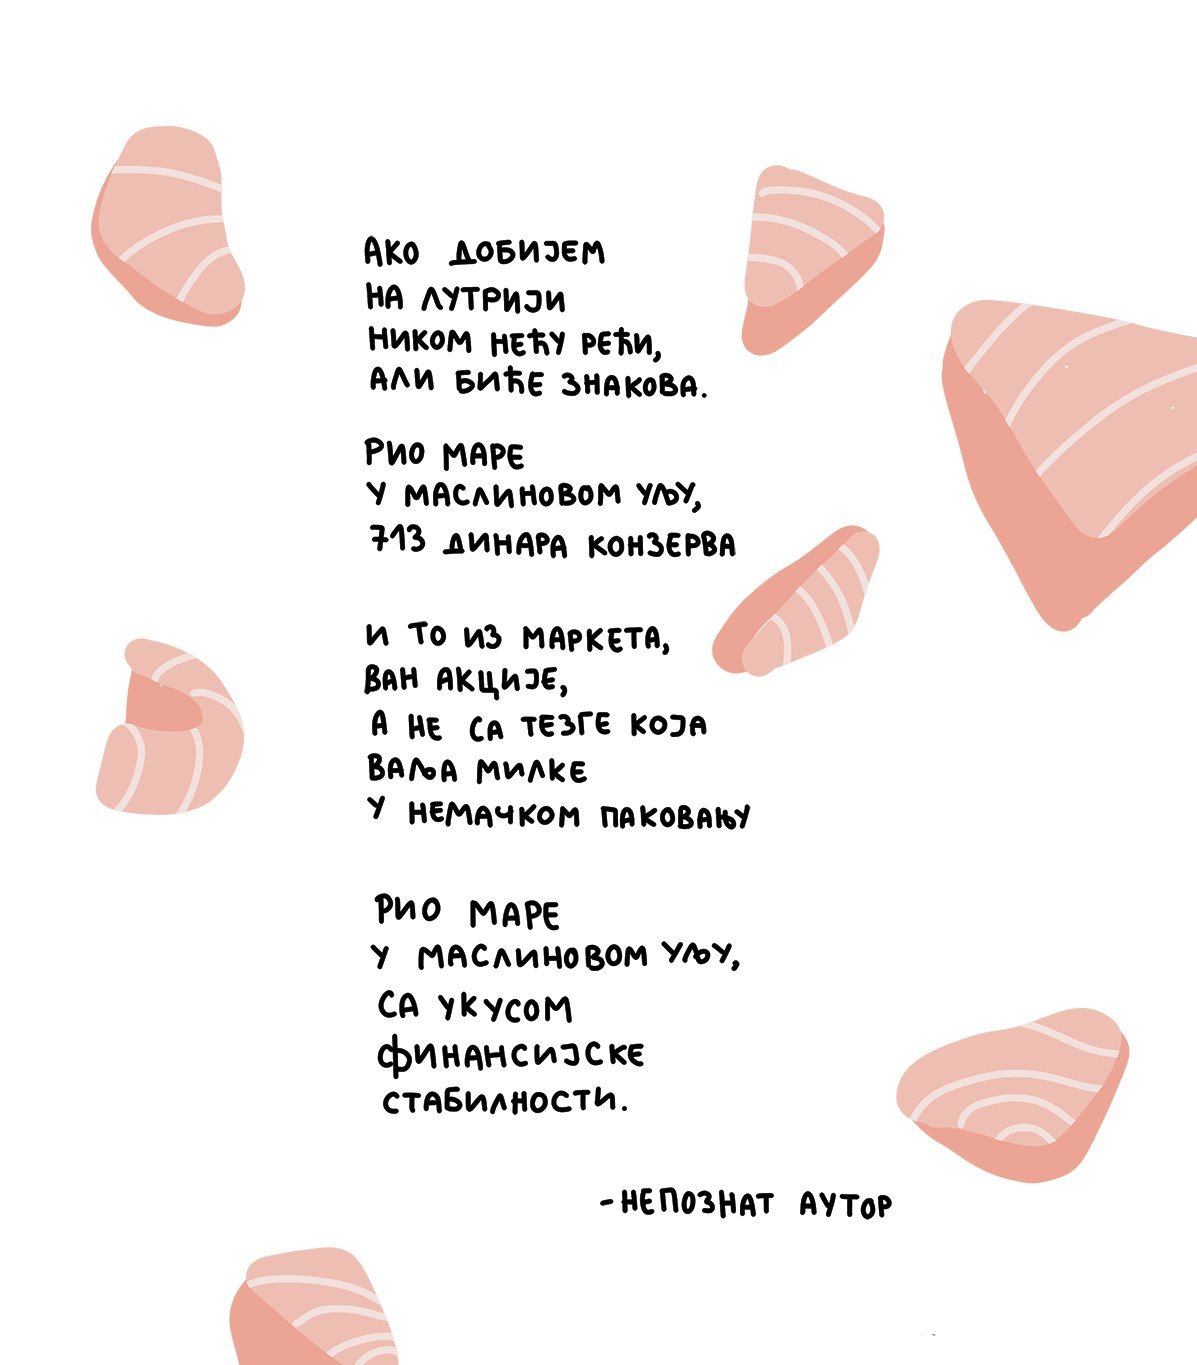 АКО ДОБИЈЕМ
НА ЛУТРИЈИ
НИКОМ НЕЋУ РЕЋИ,
АЛИ БИЋЕ ЗНАКОВА.
РИО МАРЕ
У МАСЛИНОВОМ УЉУ,
713 ДИНАРА КОНЗЕРВА
И ТО ИЗ МАРКЕТА,
ВАН АКЦИЈЕ,
А НЕ СА ТЕЗГЕ КОЈА
ВАЉА МИЛКЕ
У НЕМАЧКОМ ПАКОВАЊУ
РИО МАРЕ
У МАСЛИНОВОМ УЉУ,
СА УКУСОМ
ФИНАНСИЈСКЕ
СТАБИЛНОСТИ.
-НЕПОЗНАТ АУТОР